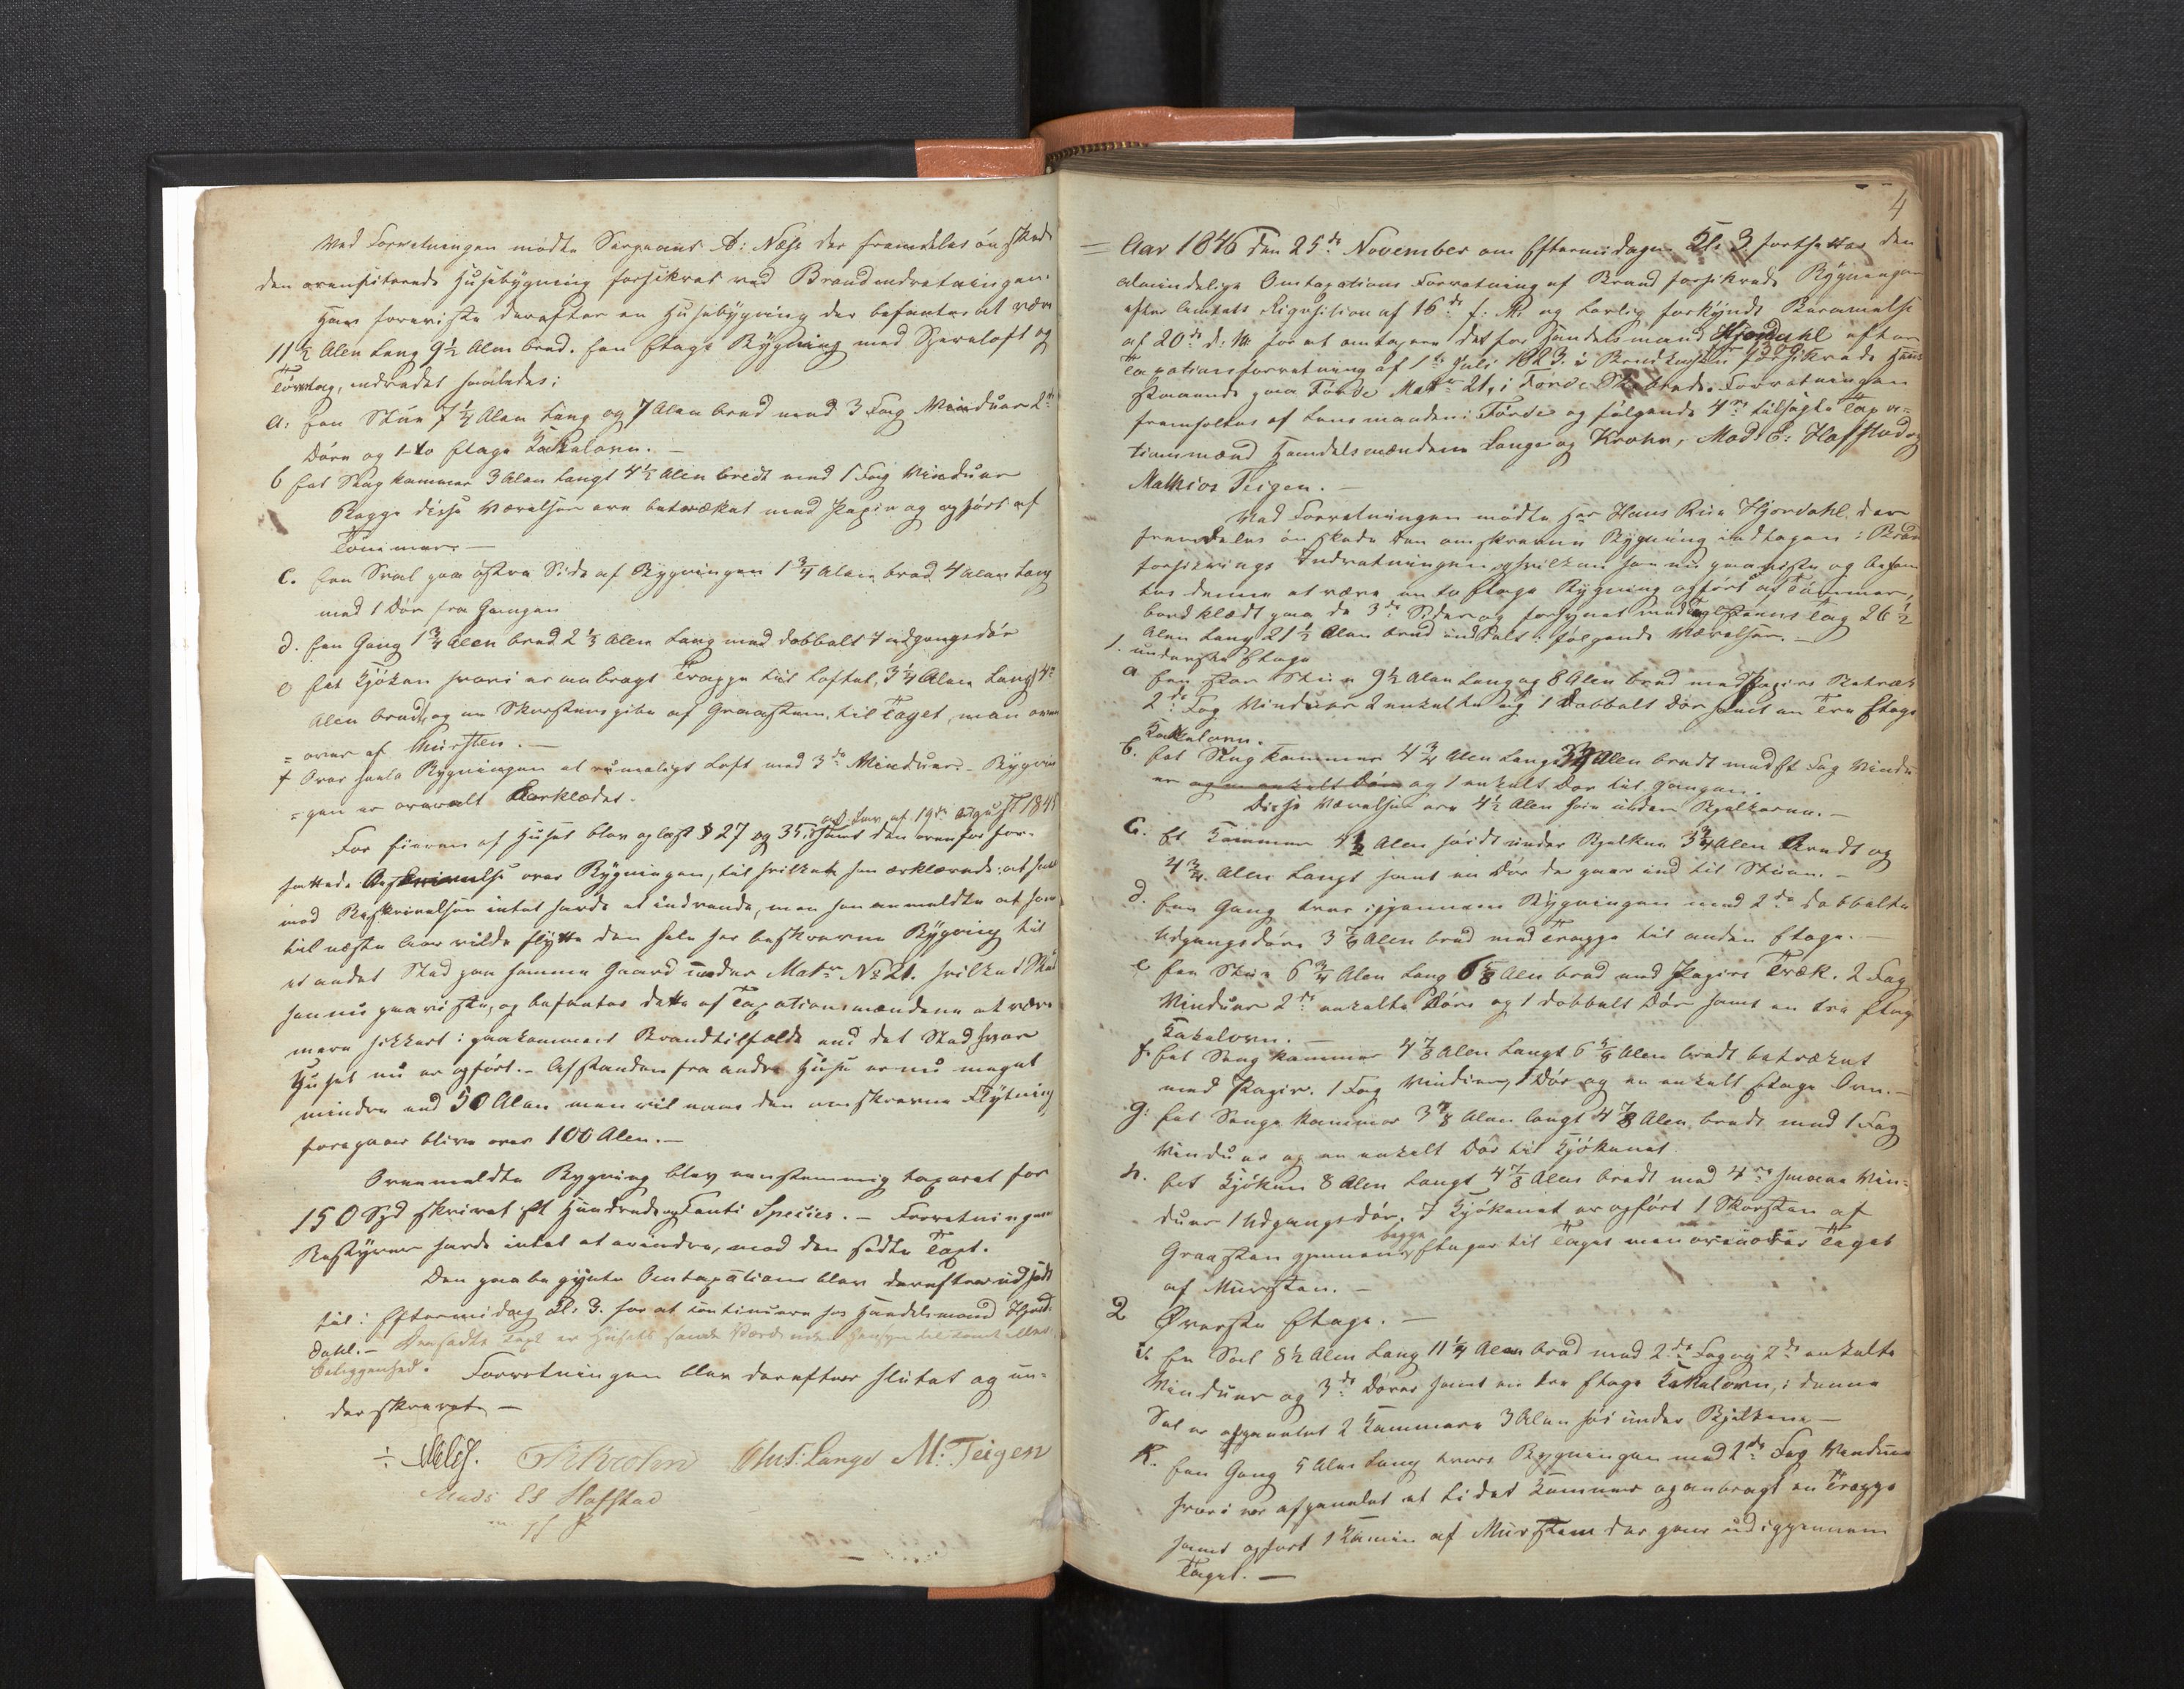 Ved Forretningen mødte Sergeant A: Næss der fremdeles ønskede
den ovensiterede Husebygning forsikret ved Brandindretningen.
Han foreviste derefter en Husebygning der befantes at være
11½ Alen Lang 9½ Alen bred. Een Etage Bygning med Sperreloft og
Tørvtag, indredet saaledes:
a: Een Stue 7½ Alen Lang og 7 Alen bred med 3 Fag Vinduer 2de
Døre og 1 to Etage Kakelovn. –
b Eet Sengkammer 3 Alen Langt 4½ Alen bredt med 1 Fag Vinduer
Begge disse Værelser ere betrækket med Papir og opført af
Tømmer. –
c. Een Sval paa østre Side af Bygningen 1¾ Alen bred 4 Alen Lang
med 1 Dør fra Gangen
d. Een Gang 1¾ Alen bred 2⅓ Alen Lang med dobbelt Indgangsdør
e Eet Kjøken hvori er anbragt Trappe til Loftet, 3¼ Alen Langt 4½
Alen bredt, og en Skorstenspibe af Graasteen, til Taget, men oven
= over af Mursten. –
f Over heele Bygningen et rumeligt Loft med 3de Vinduer. – Bygnin
= gen er overalt Bordklædet.
For Eieren af Huset blev oplæst § 27 og 35, samt den ovenfor for-
og Lov af 19de August 1845
fattede Beskrivelse over Bygningen, til hvilket han erklærede: at han
mod Beskrivelsen intet havde at indvende, men han anmeldte at han
til næste Aar vilde flytte den hele her beskrevne Bygning til
et andet Sted paa samme Gaard under Matr No 21. hvilket Sted
han nu paaviste, og befantes dette af Taxationsmændene at være
mere sikkert i paakommende Brandtilfælde end det Sted hvor
Huset nu er opført. – Afstanden fra andre Huse er nu meget
mindre end 50 Alen men vil naar den omskrevne Flytning
foregaar blive over 100 Alen. –
Ovenmeldte Bygning blev eenstemmig taxeret for
150 Spd skrivet Et Hundrede og Femti Species. – Forretningens
Bestyrer havde intet at erindre, mod den satte Taxt.
Den paabegynte Omtaxation blev derefter udsat
til: Eftermidag Kl: 3. for at continuere hos Handelsmand Hjor-
dahl. – Den satte Taxt er Husets sande Værd uden Hensyn til
Beliggenhed. Forretningen blev derefter sluttet og un-
derskrevet –
Krohn Chr: Lange M: Teigen
Mads ES Hafstad
m. f. P.
4
= Aar 1846 den 25de November om Eftermidagen Kl. 3 fortsattes den
almindelige Omtaxations Forretning af Brand forsikrede Bygninger
efter Amtets Rigvisition af 16de f. M. og Lovlig forkyndt Berammelse
af 20de d: M: for at omtaxere det for Handelsmand Hjordahl efter
Taxationsforretning af 1de Juli 1823 i Brandkassen forsikrede Huus
staaende paa Førde Matr 21, i Førde . Forretningen
fremholtes af Lensmanden i Førde og følgende 4re tilsagte Taxa-
tionsmænd Handelsmændene Lange og Krohn, Mads E: Hafstad og
Mathias Teigen. –
Ved Forretningen mødte her Hans Rise Hjordahl, der
fremdeles ønskede den omskrevne Bygning indtagen i Brand
forsikrings Indretningen, hvilken han nu paaviste og befan
tes denne at være en to Etage Bygning opført af Tømmer,
bordklædt paa de 3de Sider og forsynet med Teglsteens Tag 26½
Alen Lang 21½ Alen bred inddelt i følgende Værelser. –
1. underste Etage
a Een stor Stue 9½ Alen Lang og 8 Alen bred med Papirs Betræk
2de Fag Vinduer 2 enkelte og 1 Dobbelt Dør samt en Tre Etage
Kakelovn.
b. Eet Sengkammer 4¾ Alen Langt 3¾ Alen bredt med Et Fag Vindu
er og en enkelt Dør og 1 enkelt Dør til Gangen.
Disse Værelser ere 4½ Alen høie under Bjelkerne. –
C. Et Kammer 4½ Alen høidt under Bjelken 3¾ Alen bredt og
4¾ Alen Langt samt en Dør der gaar ind til Stuen. –
d. Een Gang tvers igjennem Bygningen med 2de dobbelte
Udgangsdøre 3⅞ Alen bred med Trappe til anden Etage. –
e Een Stue 6¾ Alen Lang 6⅝ Alen bred med Papirs Træk. 2 Fag
Vinduer 2de enkelte Døre og 1 dobbelt Dør samt en tre Etag
Kakelovn. –
f. Eet Sengkammer 4⅞ Alen Langt 6⅝ Alen bredt betrækket
med Papir. 1 Fag Vinduer, 1 Dør og en enkelt Etage Ovn. –
g: Eet Senge kammer 3⅞ Alen langt 4⅞ Alen bredt med 1 Fag
Vinduer og en enkelt Dør til Kjøkenet
h. Eet Kjøken 8 Alen Langt 4⅞ Alen bredt med 4re smaae Vin-
duer 1 Udgangsdør. I Kjøkenet er opført 1 Skorsten af
Graasten gjennem begge Etager til Taget men ovenover Taget
af Mursten. –
2 Øverste Etage. –
i. En Sal 8½ Alen Lang 11¼ Alen bred med 2de Fag og 2de enkelte
Vinduer og 3de Dører samt en tre Etage Kakelovn, i denne
Sal er afpanelet 2 Kammere 3 Alen høi under Bjelkene –
K. Een Gang 5 Alen Lang tvers Bygningen med 2de Fag Vinduer
hvori er afpanelet et lidet Kammer og anbragt en Trappe
samt opført 1 Kamin af Mursteen der gaar ud igjennem
Taget. –